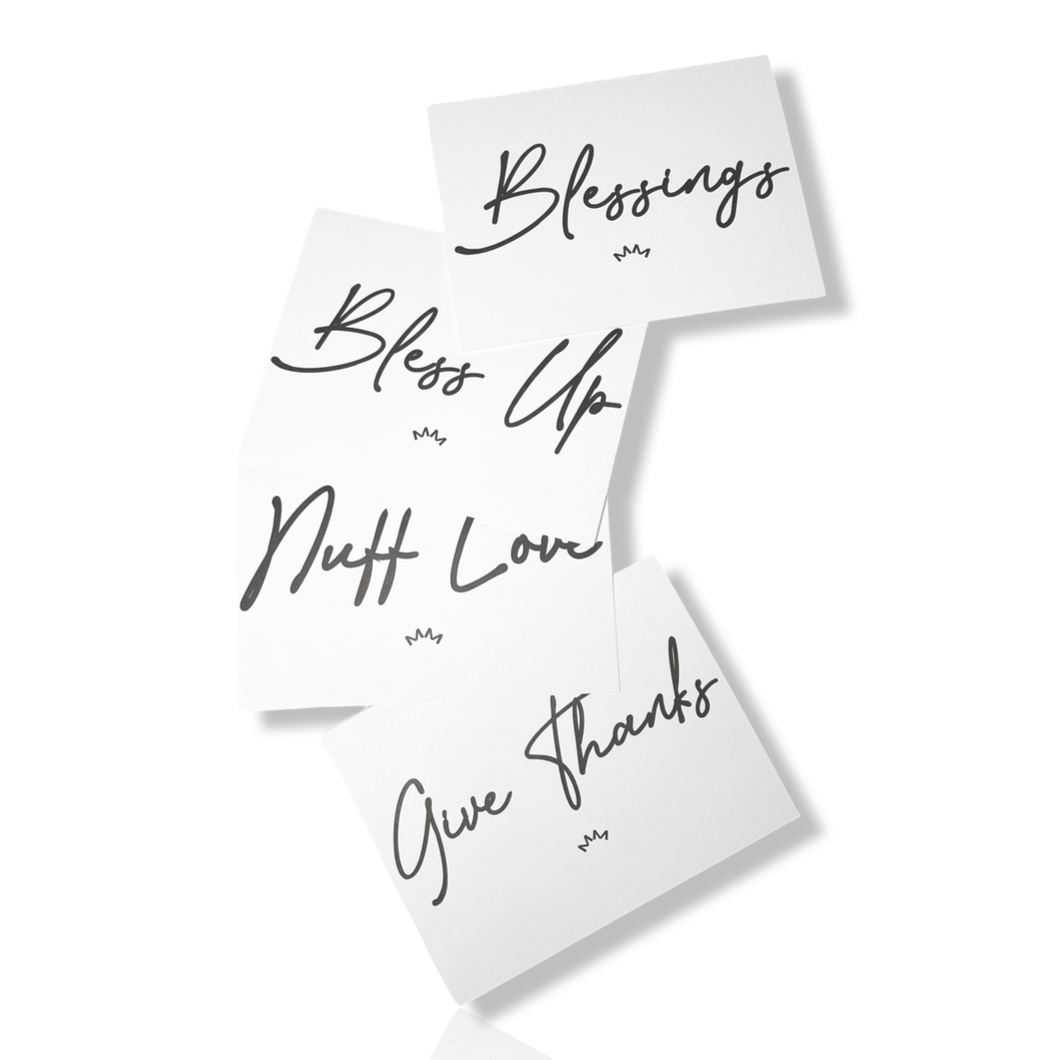 Blessings
Bless Up
Nuff Love
Give Thanks